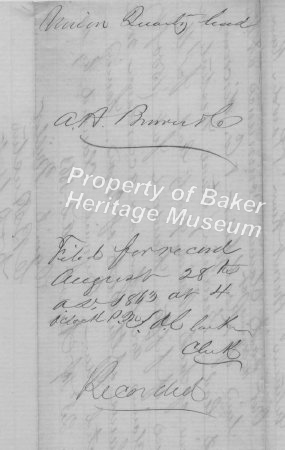 Union Quartz lead
A. H. Brown & Co
Property of Baker
Heritage Museum
Filed for record
August 28th
A D 1863 at 4
o'clock P. M.
Clerk
Recorded